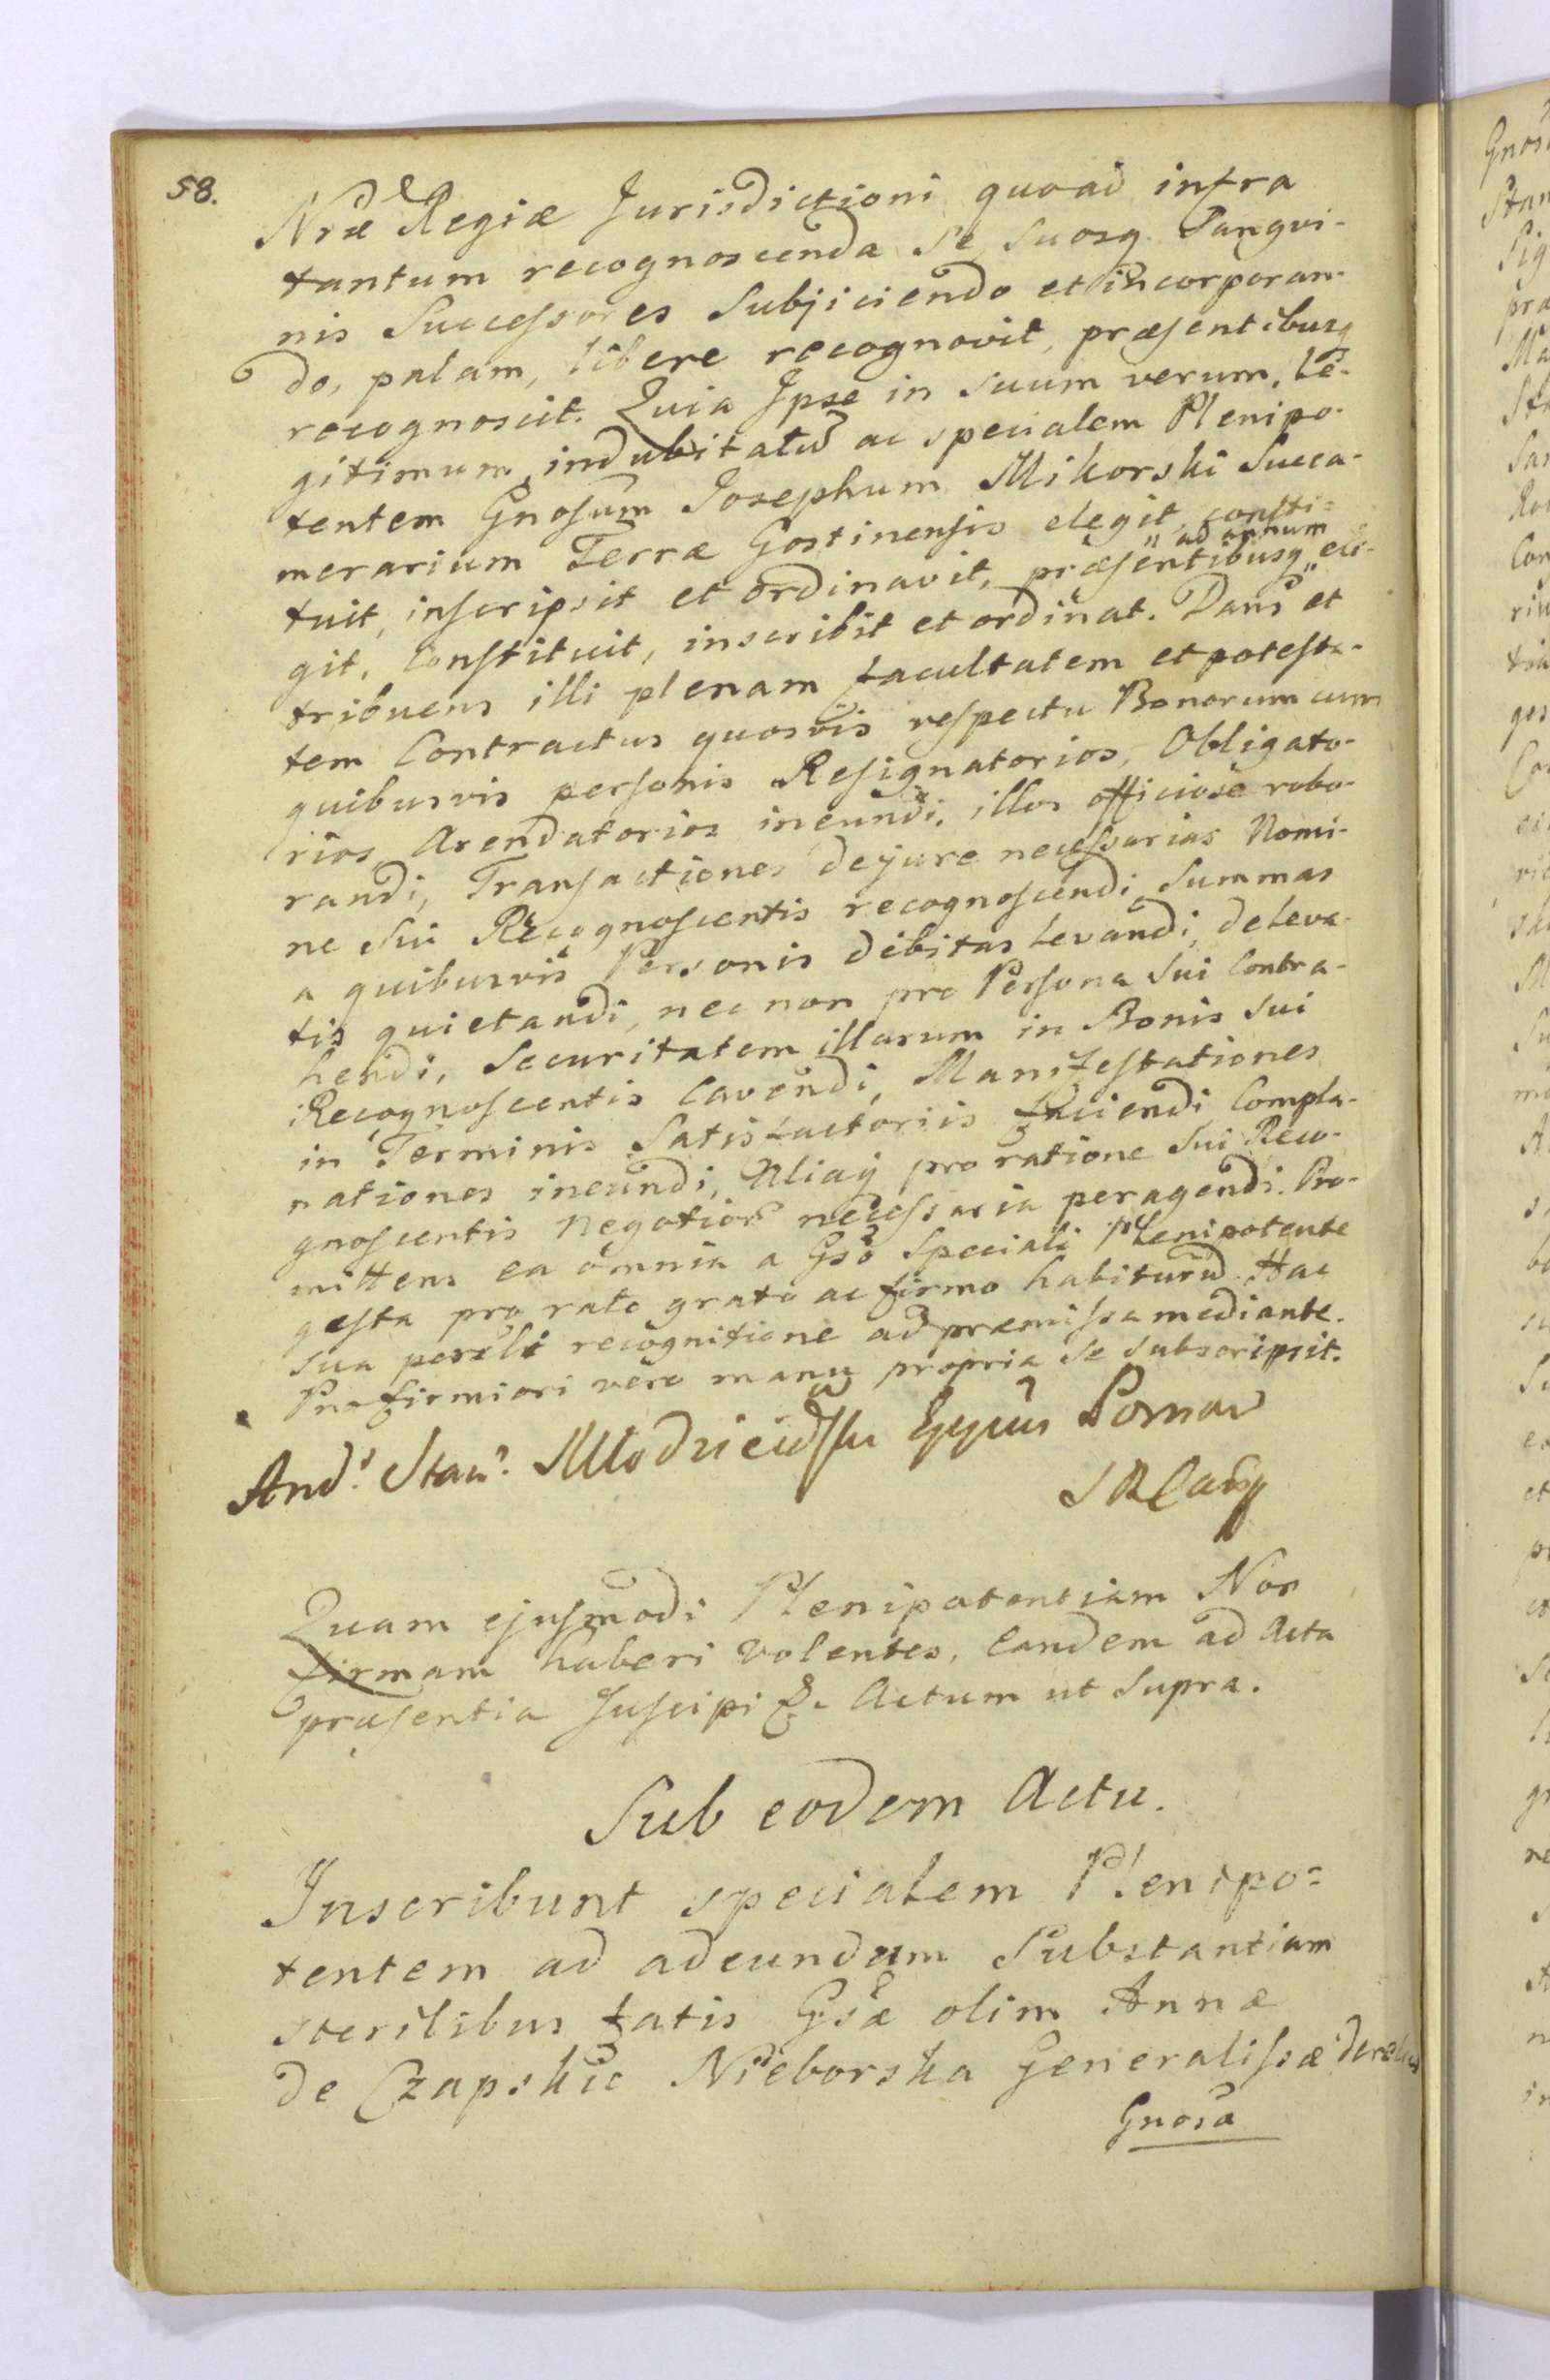 58.
Nræ Regiæ Jurisdictioni quoad infra
tantum recognoscenda Se Suosq Sangvi-
nis Successores Subjiciendo et incorporan-
do, palam, libere recognovit, præsentibusq
recognoscit. Quia Ipse in suum verum, Le-
gitimum, indubitatū ac specialem Plenipo-
tentem Gnosum Josephum Mikorski Succa-
merarium Terræ Gostinensis elegit, consti-
tuit, inscripsit et ordinavit, præsentibusq " ad annum " eli-
git, Constituit, inscribit et ordinat. Dans et
tribuens illi plenam facultatem et potesta-
tem Contractus quosvis respectu Bonorum cum
quibusvis personis Resignatorios, Obligato-
rios, Arendatorios ineundi, illos officiose robo-
randi, Transactiones de jure necessarias Nomi-
ne Sui Recognoscentis recognoscendi, Summas
a quibusvis Personis debitas Levandi, de Leva-
tis quietandi, nec non pro Persona Sui Contra-
hendi, Securitatem illarum in Bonis Sui
Recognoscentis Cavendi, Manifestationes
in Terminis Satisfactoriis faciendi Compla-
nationes ineundi, Aliaq pro ratione Sui Reco-
gnoscentis Negotiorū necessaria peragendi. Pro-
mittens ea omnia a Gso Speciali Plenipotente
gesta pro rato grato ac firmo habiturū. Hac
sua recognitione ad præmissa mediante.
Pro firmiori vero manu propria se subscripsit.
And. Stan.
Quam ejusmodi Plenipotentiam Nos
firmam haberi Volentes, Eandem ad Acta
præsentia Suscipi &. Actum ut Supra.
Sub eodem Actu.
Inscribunt specialem Plenipo-
tentem ad adeundam Substantiam
sterilibus fatis Gsæ olim Annæ
de Czapskie Nieborska Generalissæ
Gnosa